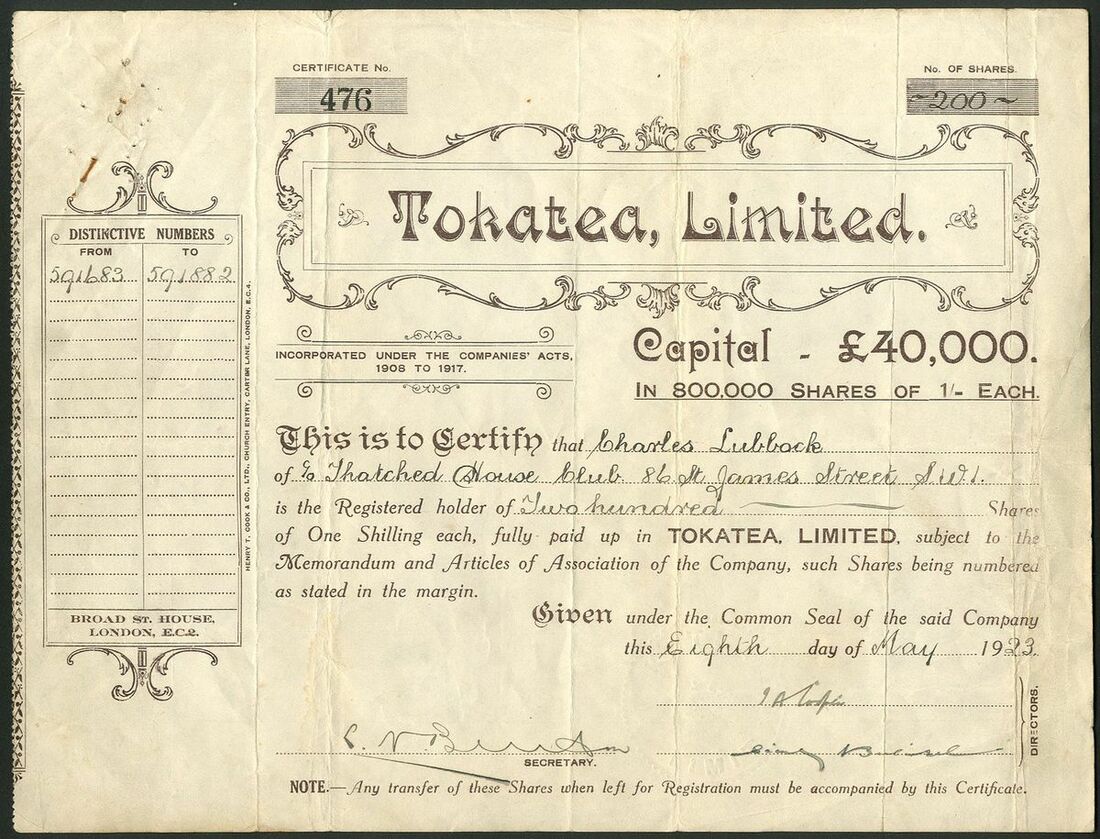 CERTIFICATE No.
476
No. OF SHARES.
~ 200 ~
Tokatea, Limited.
DISTINCTIVE NUMBERS
FROM TO
591683 591882
BROAD ST. HOUSE,
LONDON, E.C.2.
HENRY T. COOK & CO., LTD., CHURCH ENTRY, CARTER LANE, LONDON, E.C.4.
INCORPORATED UNDER THE COMPANIES' ACTS,
1908 TO 1917.
Capital - £40,000.
IN 800,000 SHARES OF 1/- EACH.
This is to Certify that Charles Lubbock
of c/o Thatched House Club. 86 St. James Street S.W.1.
is the Registered holder of Two hundred Shares
of One Shilling each, fully paid up in TOKATEA, LIMITED, subject to the
Memorandum and Articles of Association of the Company, such Shares being numbered
as stated in the margin.
Given under the Common Seal of the said Company
this Eighth day of May 1923.
DIRECTORS.
SECRETARY.
NOTE.—Any transfer of these Shares when left for Registration must be accompanied by this Certificate.